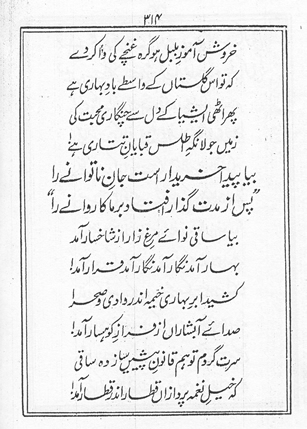 ۳۱۴
خروش آموز بلبل ہو گرہ غنچے کی وا کر دے
کہ تو اس گلستاں کے واسطے بادِ بہاری ہے
پھر اٹھی ایشیا کے دل سے چنگاری محبت کی
زمیں جولانگہِ اطلس قبایانِ تتاری ہے
بیا پیدا خریدار است جانِ ناتوانے را
"پس از مدت گذار افتاد بر ما کاروانے را"
بیا ساقی نوائے مرغِ زار از شاخسار آمد
بہار آمد نگار آمد نگار آمد قرار آمد!
کشید ابرِ بہاری خیمہ اندر وادی و صحرا
صدائے آبشاراں از فرازِ کوہسار آمد!
سرت گردم تو ہم قانونِ پیشیں ساز دہ ساقی
کہ خیلِ نغمہ پردازاں قطار اندر قطار آمد!